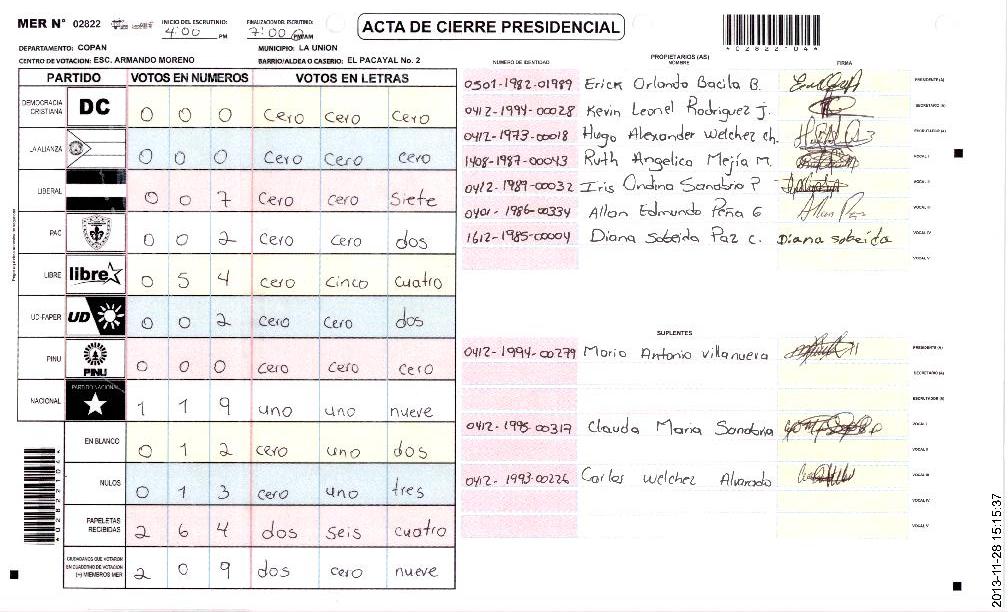 MER N° 02822
INICIO DEL ESCRUTINIO:
4:00 PM
FINALIZACION DEL ESCRUTINIO:
7:00 PM AM
ACTA DE CIERRE PRESIDENCIAL
DEPARTAMENTO: COPAN
MUNICIPIO: LA UNION
CENTRO DE VOTACION: ESC. ARMANDO MORENO
BARRIO/ALDEA O CASERIO: EL PACAYAL No. 2
PARTIDO VOTOS EN NUMEROS VOTOS EN LETRAS
DEMOCRACIA CRISTIANA DC 0 0 0 Cero Cero Cero
LA ALIANZA 0 0 0 Cero Cero cero
LIBERAL 0 0 7 Cero cero Siete
PAC 0 0 2 Cero cero dos
LIBRE libre 0 5 4 cero cinco cuatro
UD-FAPER UD 0 0 2 cero Cero dos
PINU PINU 0 0 0 cero cero cero
NACIONAL PARTIDO NACIONAL 1 1 9 uno uno nueve
EN BLANCO 0 1 2 cero uno dos
NULOS 0 1 3 cero uno tres
PAPELETAS RECIBIDAS 2 6 4 dos seis cuatro
CIUDADANOS QUE VOTARON EN CUADERNO DE VOTACION (+) MIEMBROS MER 2 0 9 dos cero nueve
PROPIETARIOS (AS)
NUMERO DE IDENTIDAD NOMBRE FIRMA
0501-1982-01989 Erick Orlando Bacila B. PRESIDENTE (A)
0412-1994-00028 Kevin Leonel Rodriguez J. SECRETARIO (A)
0412-1973-00018 Hugo Alexander Welchez ch. ESCRUTADOR (A)
1408-1987-00043 Ruth Angelica Mejía M. VOCAL I
0412-1989-00032 Iris Ondina Sanabria P VOCAL II
0401-1986-00334 Allan Edmundo Peña G Allan Paz VOCAL III
1612-1985-00004 Diana sobeida Paz c. Diana sobeida VOCAL IV
VOCAL V
SUPLENTES
0412-1994-00279 Mario Antonio villanueva PRESIDENTE (A)
SECRETARIO (A)
ESCRUTADOR (A)
0412-1995-00317 Clauda Maria Sanabria VOCAL I
VOCAL II
0412-1993-00226 Carlos Welchez Alvarado VOCAL III
VOCAL IV
VOCAL V
4028221044
4028221044
2013-11-28 15:15:37